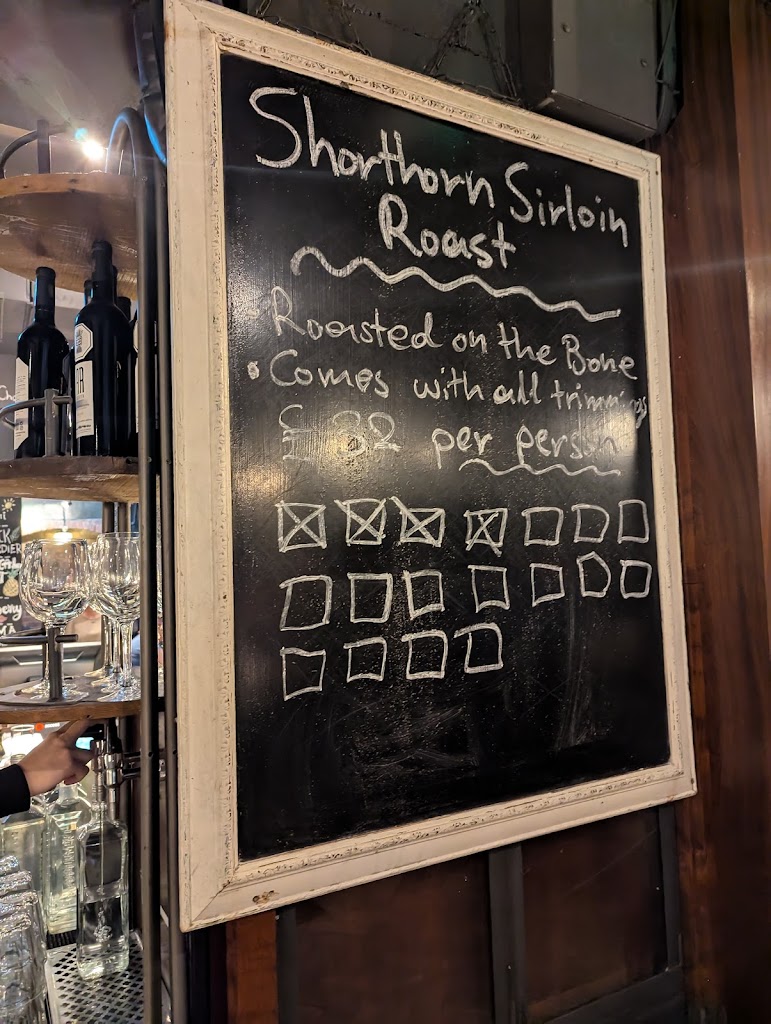 Shorthorn Sirloin
Roast
Roasted on the Bone
• Comes with all trimmings
£ 32 per person